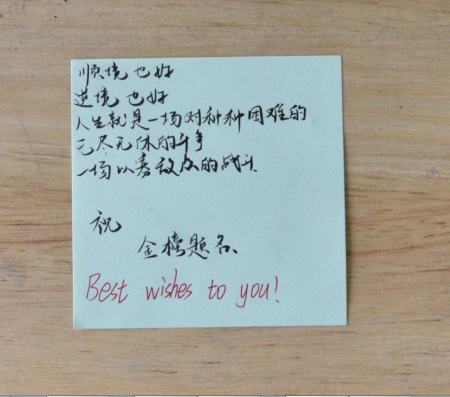 顺境也好
逆境也好
人生就是一场对种种困难的
无尽无休的斗争
一场以寡敌众的战斗
祝
金榜题名
Best wishes to you!